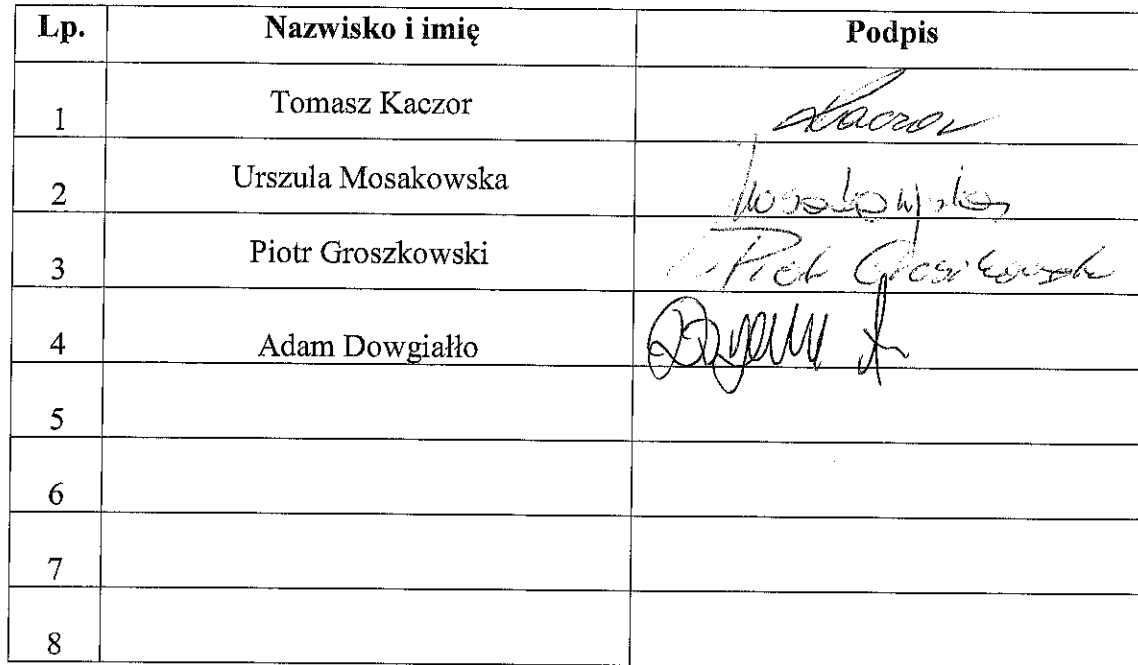 Lp. Nazwisko i imię Podpis
1 Tomasz Kaczor Kaczor
2 Urszula Mosakowska Mosakowska
3 Piotr Groszkowski Piotr Groszkowski
4 Adam Dowgiałło
5
6
7
8